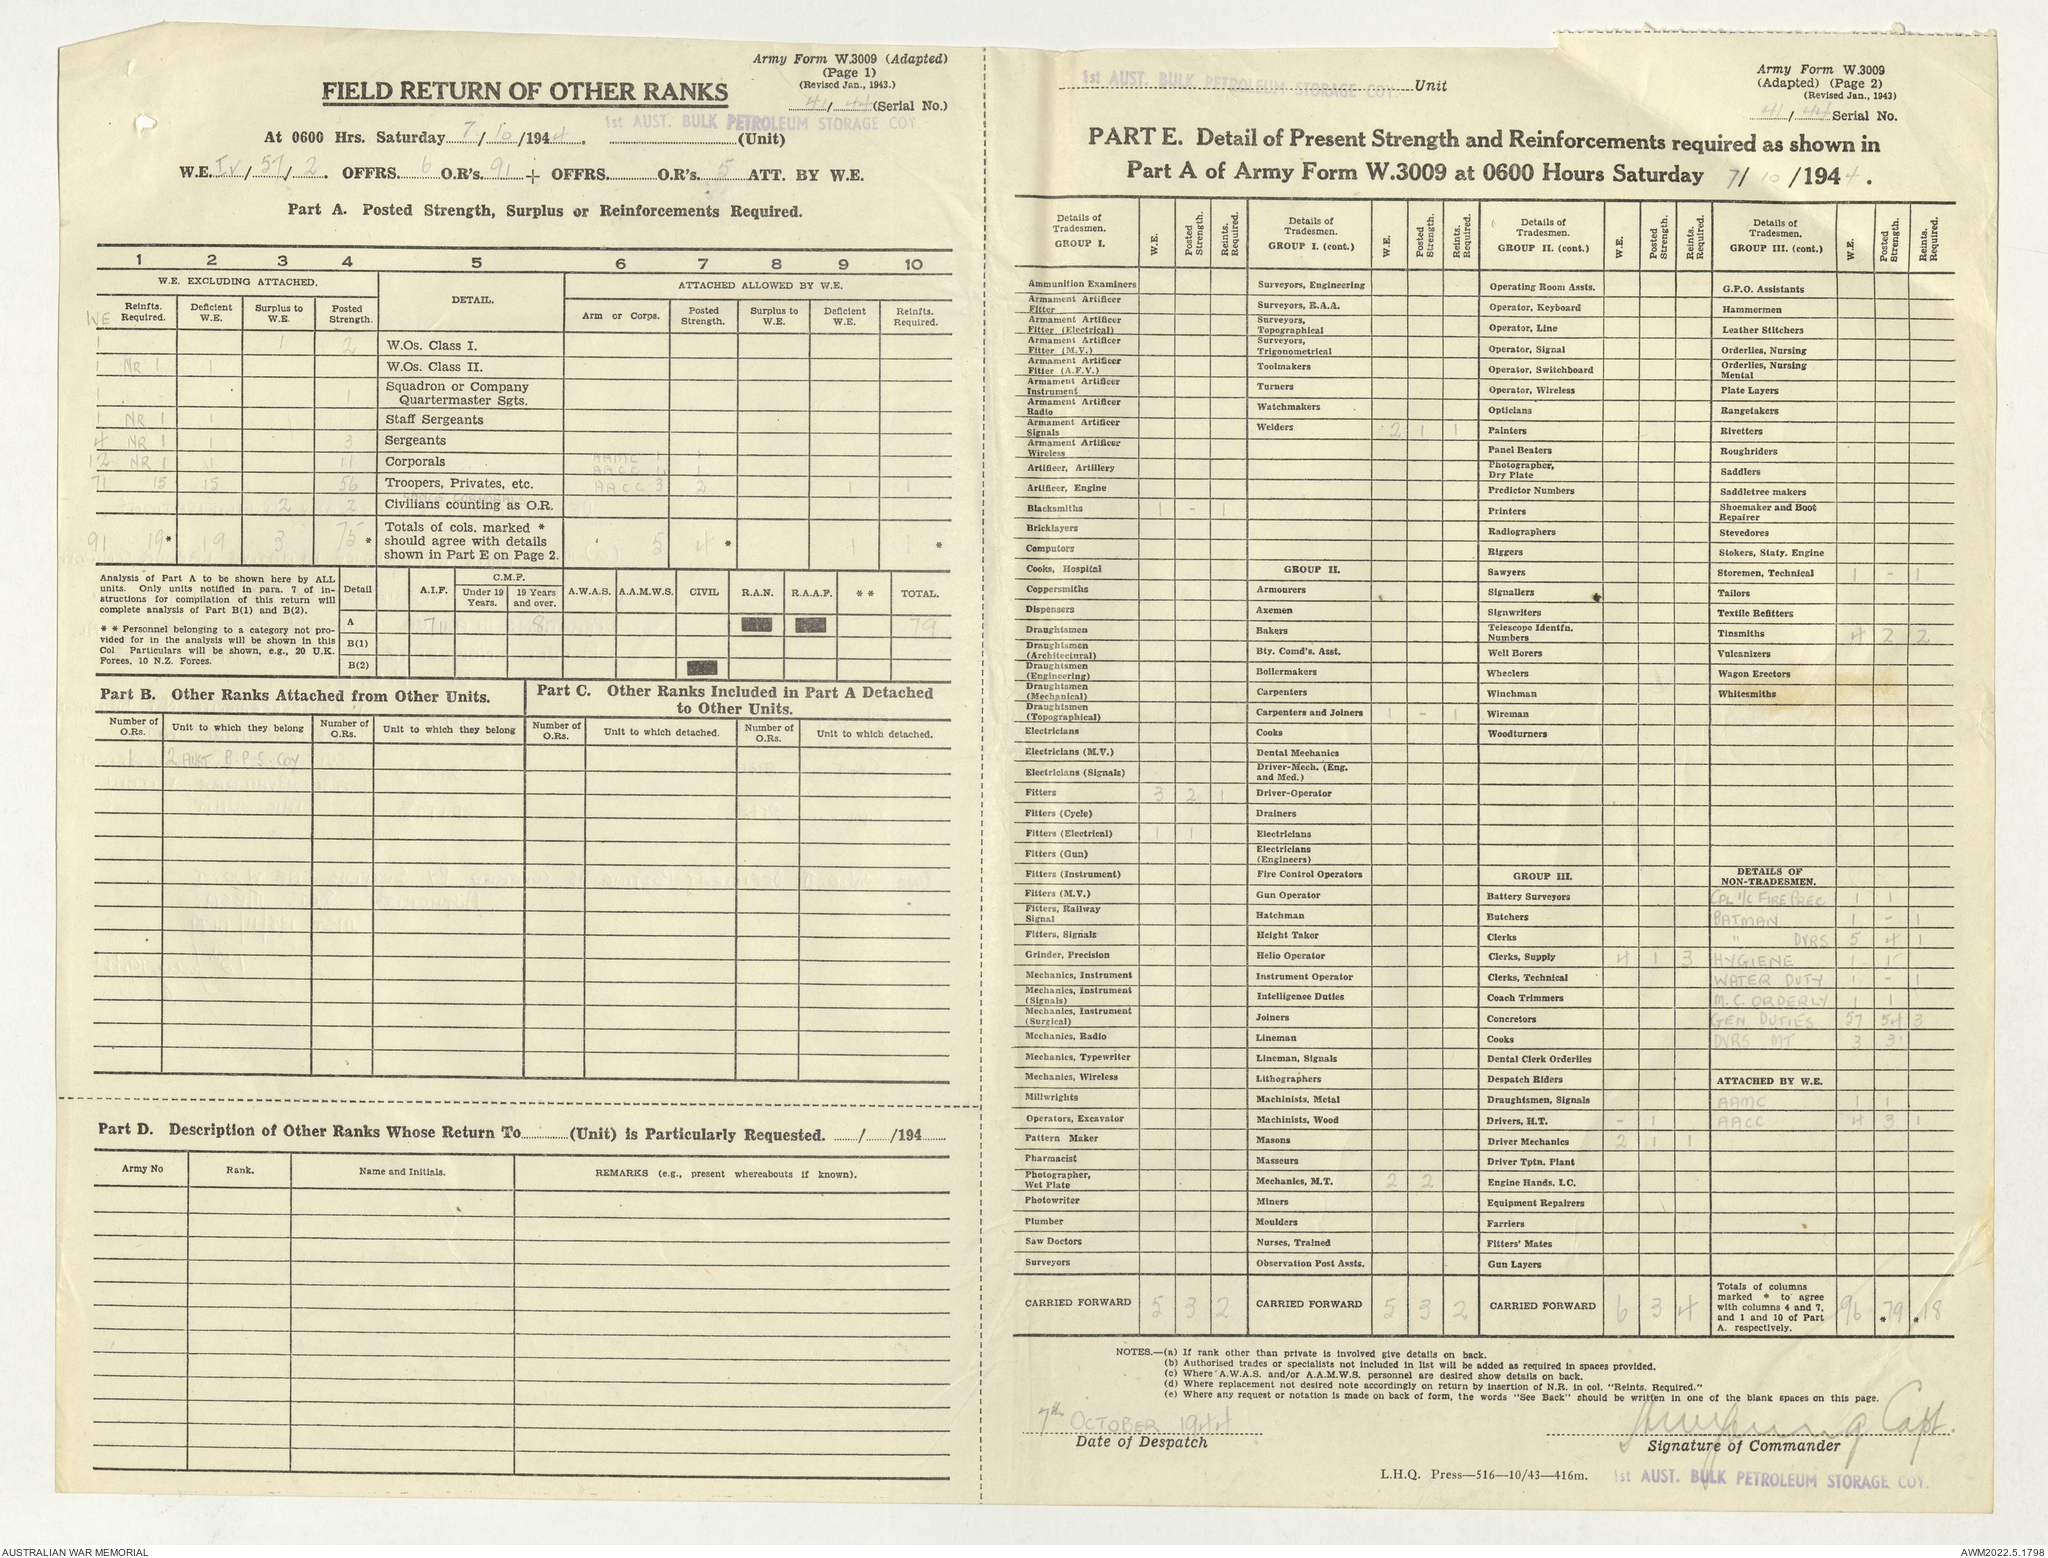 Army Form W.3009 (Adapted)
(Page 1)
(Revised Jan., 1943.)
41/44 (Serial No.)
FIELD RETURN OF OTHER RANKS
1st AUST. BULK PETROLEUM STORAGE COY.
At 0600 Hrs. Saturday 7/10/1944. (Unit)
W.E. IV/57/2. OFFRS. 6 O.R's. 91 + OFFRS. O.R's. 5 ATT. BY W.E.
Part A. Posted Strength, Surplus or Reinforcements Required.
1 2 3 4 5 6 7 8 9 10
W.E. EXCLUDING ATTACHED. DETAIL. ATTACHED ALLOWED BY W.E.
WE Reinfts. Required. Deficient W.E. Surplus to W.E. Posted Strength. Arm or Corps. Posted Strength. Surplus to W.E. Deficient W.E. Reinfts. Required.
1 1 2 W.Os. Class I.
1 NR 1 1 W.Os. Class II.
1 1 Squadron or Company Quartermaster Sgts.
1 NR 1 1 Staff Sergeants
4 NR 1 1 3 Sergeants
12 NR 1 1 11 Corporals AAMC 1 1
AACC 1 1
71 15 15 56 Troopers, Privates, etc. AACC 3 2 1 1
2 2 Civilians counting as O.R.
91 19* 19 3 75* Totals of cols. marked * should agree with details shown in Part E on Page 2. 5 4* 1 1*
Analysis of Part A to be shown here by ALL units. Only units notified in para. 7 of instructions for compilation of this return will complete analysis of Part B(1) and B(2).
* * Personnel belonging to a category not provided for in the analysis will be shown in this Col. Particulars will be shown, e.g., 20 U.K. Forces, 10 N.Z. Forces.
Detail A.I.F. C.M.F. Under 19 Years. 19 Years and over. A.W.A.S. A.A.M.W.S. CIVIL R.A.N. R.A.A.F. * * TOTAL.
A 71 8 79
B(1)
B(2)
Part B. Other Ranks Attached from Other Units.
Number of O.Rs. Unit to which they belong Number of O.Rs. Unit to which they belong
1 2 AUST B.P.S. COY
Part C. Other Ranks Included in Part A Detached to Other Units.
Number of O.Rs. Unit to which detached. Number of O.Rs. Unit to which detached.
Part D. Description of Other Ranks Whose Return To (Unit) is Particularly Requested. / /194
Army No Rank. Name and Initials. REMARKS (e.g., present whereabouts if known).
1st AUST. BULK PETROLEUM STORAGE COY. Unit
Army Form W.3009
(Adapted) (Page 2)
(Revised Jan., 1943)
41/44 Serial No.
PART E. Detail of Present Strength and Reinforcements required as shown in
Part A of Army Form W.3009 at 0600 Hours Saturday 7/10/1944.
Details of Tradesmen. GROUP I. W.E. Posted Strength. Reints. Required.
Ammunition Examiners
Armament Artificer Fitter
Armament Artificer Fitter (Electrical)
Armament Artificer Fitter (M.V.)
Armament Artificer Fitter (A.F.V.)
Armament Artificer Instrument
Armament Artificer Radio
Armament Artificer Signals
Armament Artificer Wireless
Artificer, Artillery
Artificer, Engine
Blacksmiths 1 - 1
Bricklayers
Computors
Cooks, Hospital
Coppersmiths
Dispensers
Draughtsmen
Draughtsmen (Architectural)
Draughtsmen (Engineering)
Draughtsmen (Mechanical)
Draughtsmen (Topographical)
Electricians
Electricians (M.V.)
Electricians (Signals)
Fitters 3 2 1
Fitters (Cycle)
Fitters (Electrical) 1 1
Fitters (Gun)
Fitters (Instrument)
Fitters (M.V.)
Fitters, Railway Signal
Fitters, Signals
Grinder, Precision
Mechanics, Instrument
Mechanics, Instrument (Signals)
Mechanics, Instrument (Surgical)
Mechanics, Radio
Mechanics, Typewriter
Mechanics, Wireless
Millwrights
Operators, Excavator
Pattern Maker
Pharmacist
Photographer, Wet Plate
Photowriter
Plumber
Saw Doctors
Surveyors
CARRIED FORWARD 5 3 2
Details of Tradesmen. GROUP I. (cont.) W.E. Posted Strength. Reints. Required.
Surveyors, Engineering
Surveyors, R.A.A.
Surveyors, Topographical
Surveyors, Trigonometrical
Toolmakers
Turners
Watchmakers
Welders 2 1 1
GROUP II.
Armourers
Axemen
Bakers
Bty. Comd's. Asst.
Boilermakers
Carpenters
Carpenters and Joiners 1 - 1
Cooks
Dental Mechanics
Driver-Mech. (Eng. and Med.)
Driver-Operator
Drainers
Electricians
Electricians (Engineers)
Fire Control Operators
Gun Operator
Hatchman
Height Taker
Helio Operator
Instrument Operator
Intelligence Duties
Joiners
Lineman
Lineman, Signals
Lithographers
Machinists, Metal
Machinists, Wood
Masons
Masseurs
Mechanics, M.T. 2 2
Miners
Moulders
Nurses, Trained
Observation Post Assts.
CARRIED FORWARD 5 3 2
Details of Tradesmen. GROUP II. (cont.) W.E. Posted Strength. Reints. Required.
Operating Room Assts.
Operator, Keyboard
Operator, Line
Operator, Signal
Operator, Switchboard
Operator, Wireless
Opticians
Painters
Panel Beaters
Photographer, Dry Plate
Predictor Numbers
Printers
Radiographers
Riggers
Sawyers
Signallers
Signwriters
Telescope Identfn. Numbers
Well Borers
Wheelers
Winchman
Wireman
Woodturners
GROUP III.
Battery Surveyors
Butchers
Clerks
Clerks, Supply 4 1 3
Clerks, Technical
Coach Trimmers
Concretors
Cooks
Dental Clerk Orderlies
Despatch Riders
Draughtsmen, Signals
Drivers, H.T. - 1
Driver Mechanics 2 1 1
Driver Tptn. Plant
Engine Hands, I.C.
Equipment Repairers
Farriers
Fitters' Mates
Gun Layers
CARRIED FORWARD 6 3 4
Details of Tradesmen. GROUP III. (cont.) W.E. Posted Strength. Reints. Required.
G.P.O. Assistants
Hammermen
Leather Stitchers
Orderlies, Nursing
Orderlies, Nursing Mental
Plate Layers
Rangetakers
Rivetters
Roughriders
Saddlers
Saddletree makers
Shoemaker and Boot Repairer
Stevedores
Stokers, Staty. Engine
Storemen, Technical 1 - 1
Tailors
Textile Refitters
Tinsmiths 4 2 2
Vulcanizers
Wagon Erectors
Whitesmiths
DETAILS OF NON-TRADESMEN.
CPL I/C FIRE PREC 1 1
BATMAN 1 - 1
" DVRS 5 4 1
HYGIENE 1 1
WATER DUTY 1 - 1
M.C. ORDERLY 1 1
GEN DUTIES 57 54 3
DVRS MT 3 3
ATTACHED BY W.E.
AAMC 1 1
AACC 4 3 1
Totals of columns marked * to agree with columns 4 and 7, and 1 and 10 of Part A. respectively. 96 *79 *18
NOTES.—(a) If rank other than private is involved give details on back.
(b) Authorised trades or specialists not included in list will be added as required in spaces provided.
(c) Where A.W.A.S. and/or A.A.M.W.S. personnel are desired show details on back.
(d) Where replacement not desired note accordingly on return by insertion of N.R. in col. "Reints. Required."
(e) Where any request or notation is made on back of form, the words "See Back" should be written in one of the blank spaces on this page.
7th OCTOBER 1944
Date of Despatch
Capt.
Signature of Commander
L.H.Q. Press—516—10/43—416m.
1st AUST. BULK PETROLEUM STORAGE COY.
AUSTRALIAN WAR MEMORIAL
AWM2022.5.1798